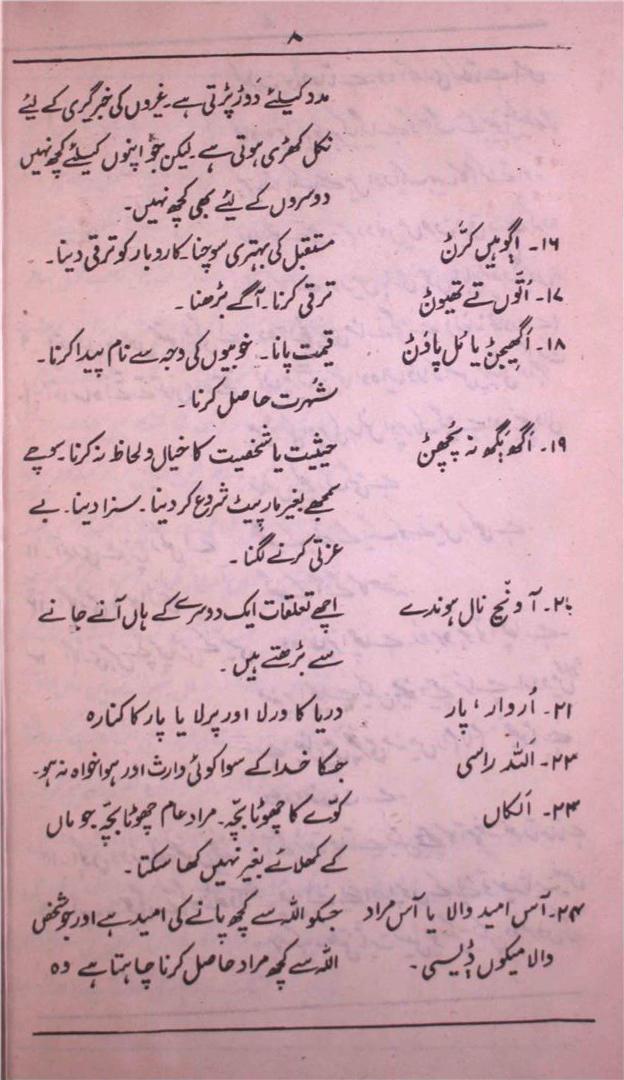 ۸
مدد کیلئے دَوڑ پڑتی ہے۔ غیروں کی خبرگیری کے لیئے
نکل کھڑی ہوتی ہے۔ لیکن جو اپنوں کیلئے کچھ نہیں
دوسروں کے لیئے بھی کچھ نہیں۔
۱۶۔ اگوہیں کرݨ مستقبل کی بہتری سوچنا۔ کاروبار کو ترقی دینا۔
۱۷۔ اُتوں تے تھیوݨ ترقی کرنا۔ آگے بڑھنا۔
۱۸۔ اگھیجݨ یا مُل پاوݨ قیمت پانا۔ خوبیوں کی وجہ سے نام پیدا کرنا۔
شہُرت حاصل کرنا۔
۱۹۔ اگھ بگھ نہ پُچھݨ حیثیت یا شخصیت کا خیال و لحاظ نہ کرنا۔ سوچے
سمجھے بغیر مار پیٹ شروع کر دینا۔ سزا دینا۔ بے
عزتی کرنے لگنا۔
۲۰۔ آ ونّج نال ہوندے اچھے تعلقات ایک دوسرے کے ہاں آنے جانے
سے بڑھتے ہیں۔
۲۱۔ اُروار، پار دریا کا ورلا اور پرلا یا پار کا کنارہ
۲۳۔ اللہ راسی جسکا خدا کے سوا کوئی وارث اور ہوا خواہ نہ ہو۔
۲۴۔ اَلکاں کوّے کا چھوٹا بچّہ۔ مراد عام چھوٹا بچّہ جو ماں
کے کھلائے بغیر نہیں کھا سکتا۔
۲۴۔ آس امید والا یا آس مراد جسکو اللہ سے کچھ پانے کی امید ہے اور جو شخص
والا میکوں ڈیسی۔ اللہ سے کچھ مراد حاصل کرنا چاہتا ہے وہ